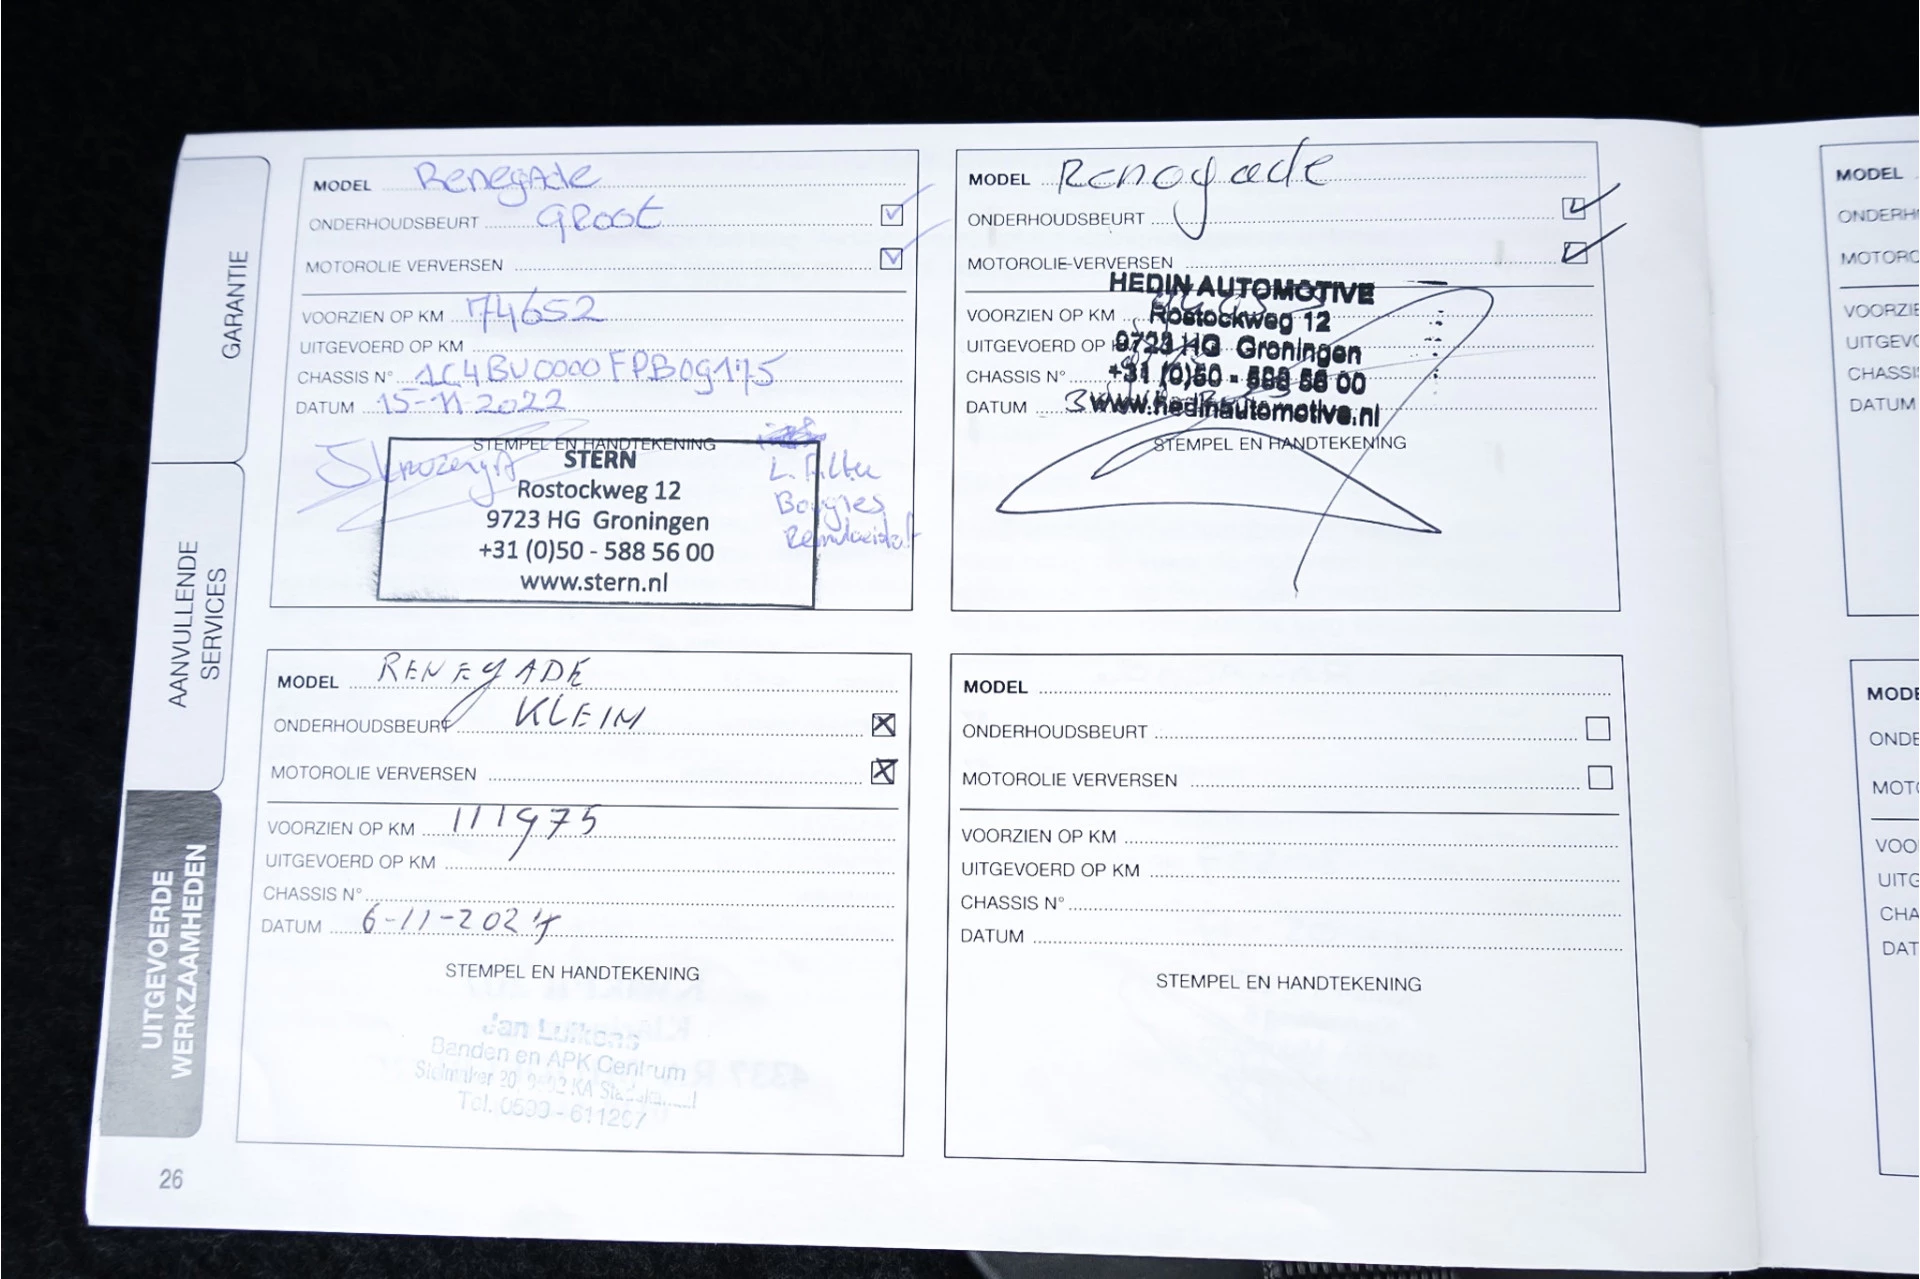 GARANTIE
AANVULLENDE
SERVICES
UITGEVOERDE
WERKZAAMHEDEN
MODEL Renegade
ONDERHOUDSBEURT GROOT
MOTOROLIE VERVERSEN
VOORZIEN OP KM 74652
UITGEVOERD OP KM
CHASSIS N° 1C4BU0000FPB09175
DATUM 15-11-2022
STEMPEL EN HANDTEKENING
STERN
Rostockweg 12
9723 HG Groningen
+31 (0)50 - 588 56 00
www.stern.nl
L. Filter
Bougies
MODEL Renegade
ONDERHOUDSBEURT
MOTOROLIE VERVERSEN
HEDIN AUTOMOTIVE
VOORZIEN OP KM
Rostockweg 12
UITGEVOERD OP
9723 HG Groningen
CHASSIS N°
+31 (0)50 - 588 56 00
DATUM
www.hedinautomotive.nl
STEMPEL EN HANDTEKENING
MODEL RENEGADE
ONDERHOUDSBEURT KLEIN
MOTOROLIE VERVERSEN
VOORZIEN OP KM 111975
UITGEVOERD OP KM
CHASSIS N°
DATUM 6-11-2024
STEMPEL EN HANDTEKENING
Jan Luikens
Banden en APK Centrum
Tel. 0599 - 611267
MODEL
ONDERHOUDSBEURT
MOTOROLIE VERVERSEN
VOORZIEN OP KM
UITGEVOERD OP KM
CHASSIS N°
DATUM
STEMPEL EN HANDTEKENING
26
MODEL
ONDERH
MOTORO
VOORZIE
UITGEVO
CHASSIS
DATUM
MODE
ONDE
MOTO
VOO
UITG
CHA
DAT